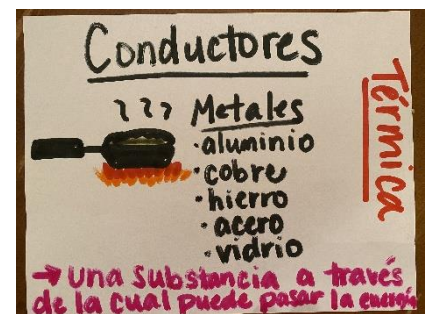 Conductores
Térmica
Metales
·aluminio
·cobre
·hierro
·acero
·vidrio
→ Una Substancia a través
de la cual puede pasar la energía